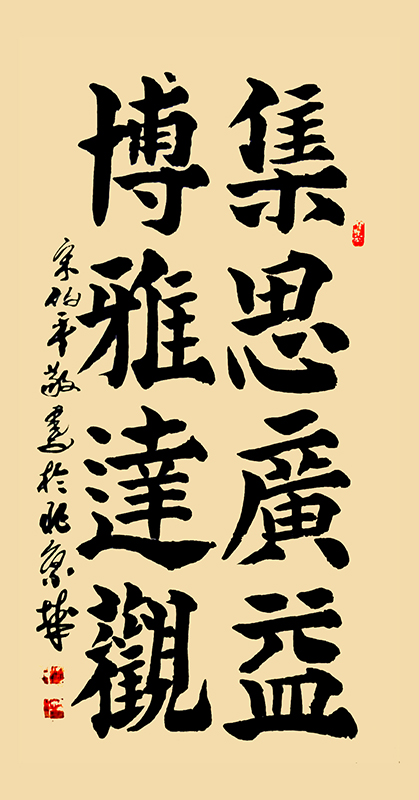 集思廣益
博雅達觀
宋伯 敬書於北京